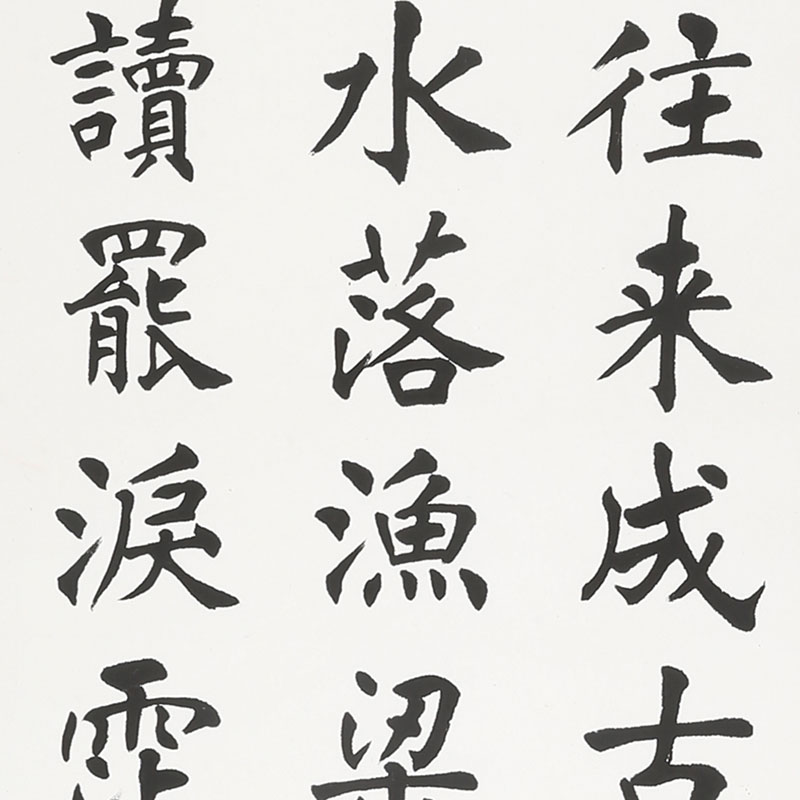 往来成古
水落漁梁
讀罷淚霑